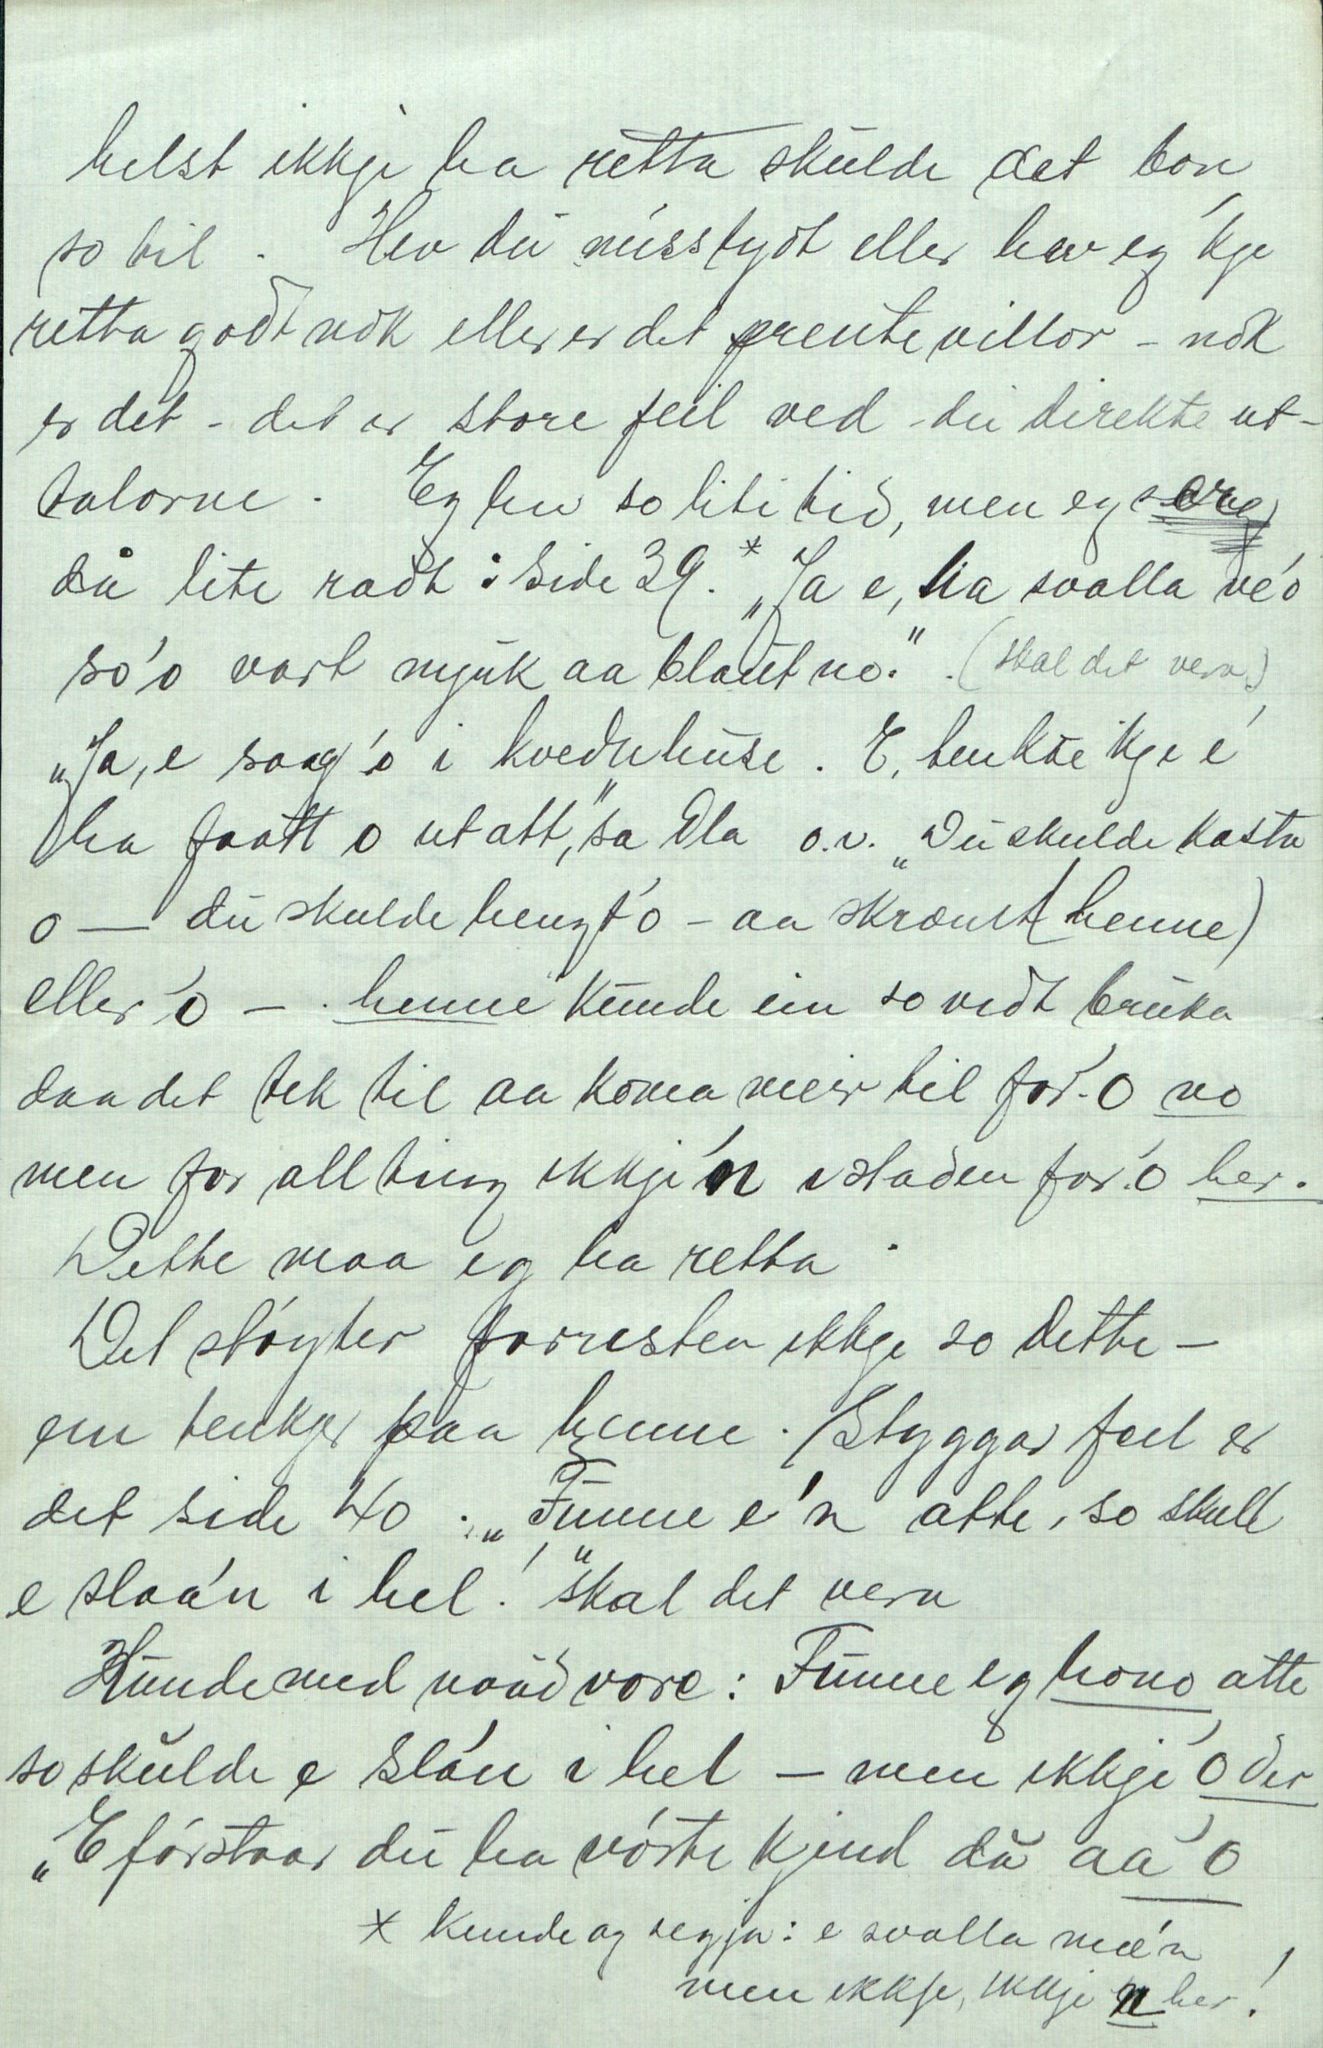 helst ikkje ha retta skulde det bon
so til. Hev du misstydt eller hev eg 'kje
retta godt nok eller er det prentevillor – nok
er det – det er store feil ved dei direkte ut-
talorne. Eg hev so liti tid, men eg
då lite radt: Side 39.* „Ja e, ha svalla ve'o
so'o vart mjuk aa blaut no." (skal det vera)
„Ja, e saag'o i kvednhuse. E, tenkte 'kje e'
ha faatt o ut att," sa Ola o.v. „Du skulde kasta
o — du skulde hengt'o – aa skrømt (henne)
eller 'o – henne kunde ein so vidt bruka
daa det tek til aa koma meir til for 'o no
men for all ting ikkje 'n istaden for 'o her.
Dette maa eg ha retta.
Det støyter forresten ikkje so dette –
ein tenkjer paa henne. Styggar feil er
det side 40: „Funne e'n atte, so skuld
e slaa'n i hel!" skal det vera
Kunde med naud vore: Funne eg hono atte
so skulde e slå'n i hel – men ikkje 'o der
„E førstaar du ha vørte kjend du aa 'o
* kunde og segja: e svalla mæ'n
men ikkje, ikkje n her!